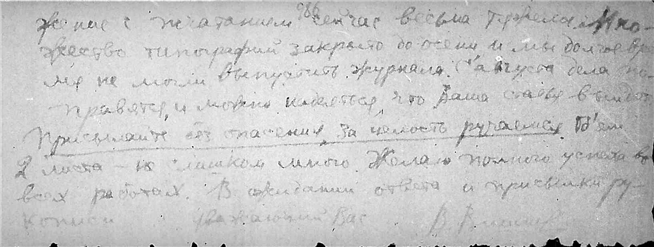 жение с печатанием сейчас весьма тяжелое. Мно-
жество типографий закрыто до осени и мы долгое вре-
мя не могли выпустить журнала. С августа дела по-
правятся, и можно надеяться, что Ваша статья выйдет.
Присылайте без опасения, за целость ручаемся. Об'ем
2 листа – не слишком много. Желаю полного успеха во
всех работах. В ожидании ответа и присылки ру-
кописи уважающий Вас В.